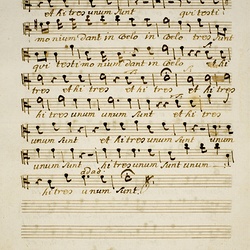 et hi tres unum sunt qui testi
monium dant in cœlo in cœlo tres sunt
qui testimonium dant in cœlo et hi
tres et hi tres et hi tres et hi tres et
hi tres unum sunt unum sunt et hi tres
unum sunt et hi tres unum sunt unum
hi tres unum sunt